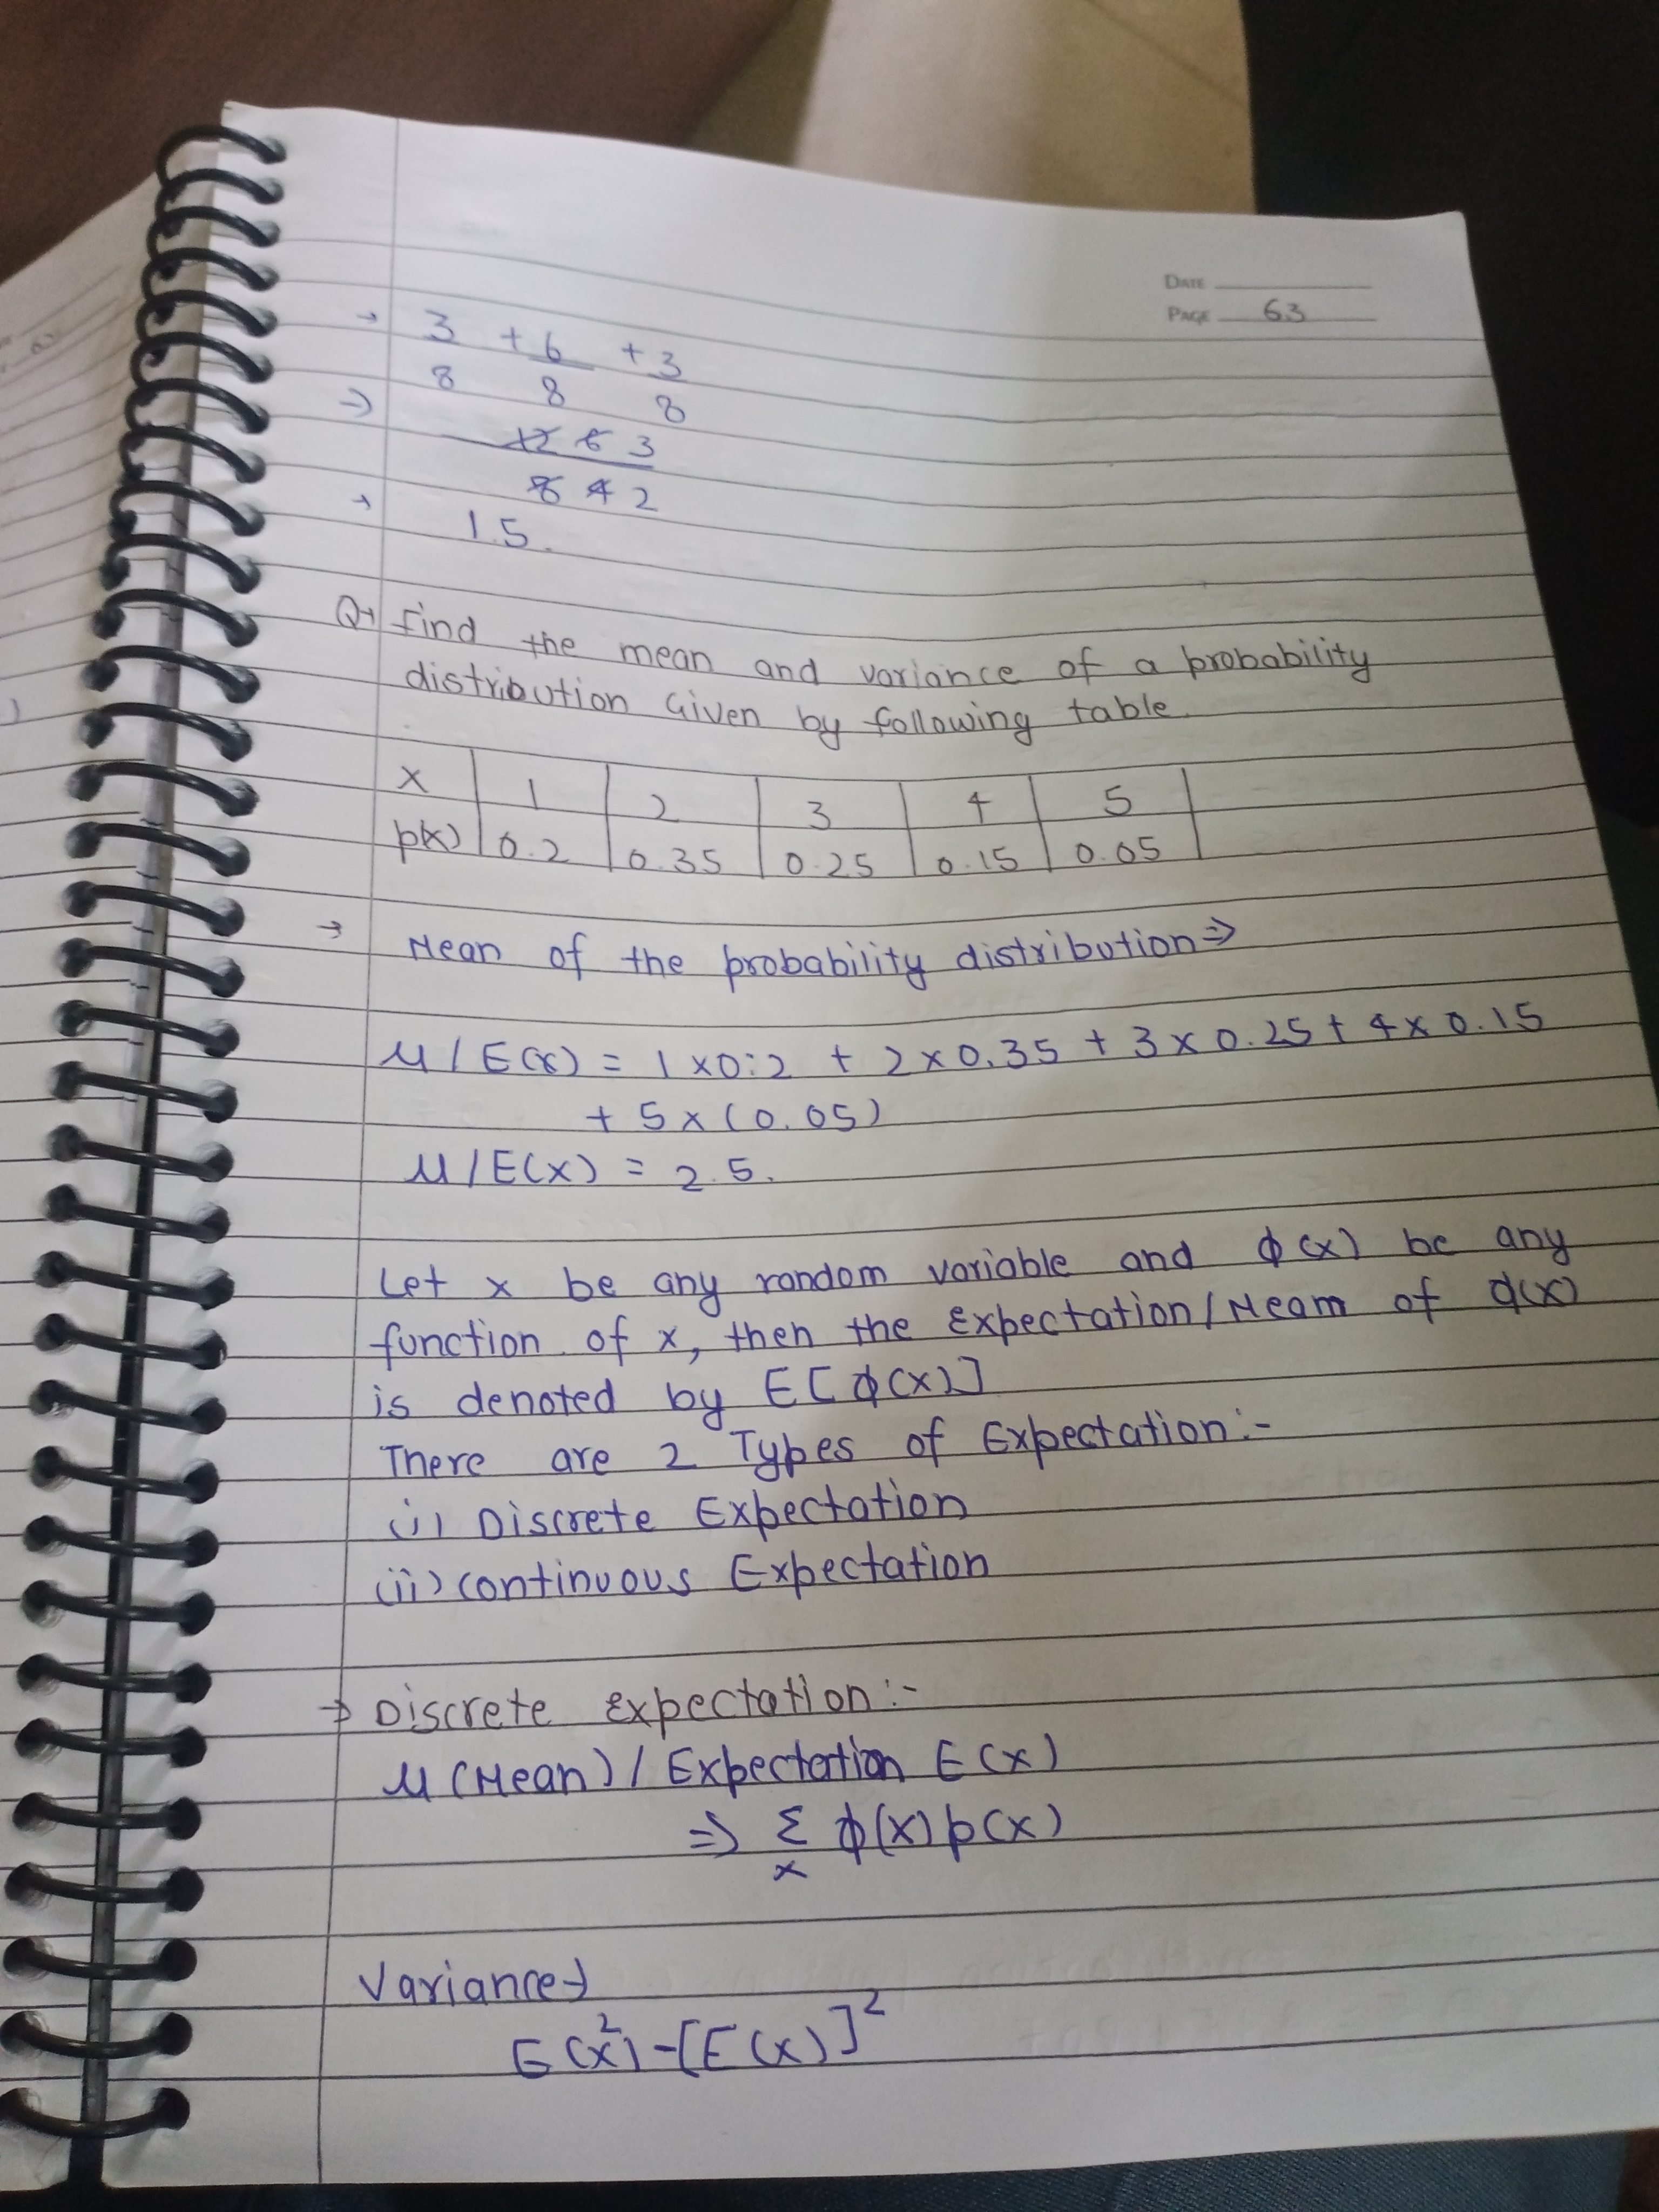 DATE
PAGE 63
→ 3/8 + 6/8 + 3/8
⇒ 12 6 3 / 8 4 2
→ 1.5.
Q→ find the mean and variance of a probability
distribution Given by following table.
x 1 2 3 4 5
p(x) 0.2 0.35 0.25 0.15 0.05
→ Mean of the probability distribution ⇒
μ / E(x) = 1 x 0.2 + 2 x 0.35 + 3 x 0.25 + 4 x 0.15
+ 5 x (0.05)
μ / E(x) = 2.5.
Let x be any random variable and ϕ(x) be any
function of x, then the Expectation/Mean of ϕ(x)
is denoted by E[ϕ(x)]
There are 2 Types of Expectation:-
(i) Discrete Expectation
(ii) continuous Expectation
→ Discrete expectation:-
μ (Mean) / Expectation E(x)
⇒ Σx ϕ(x) p(x)
Variance→
E(x²) - [E(x)]²